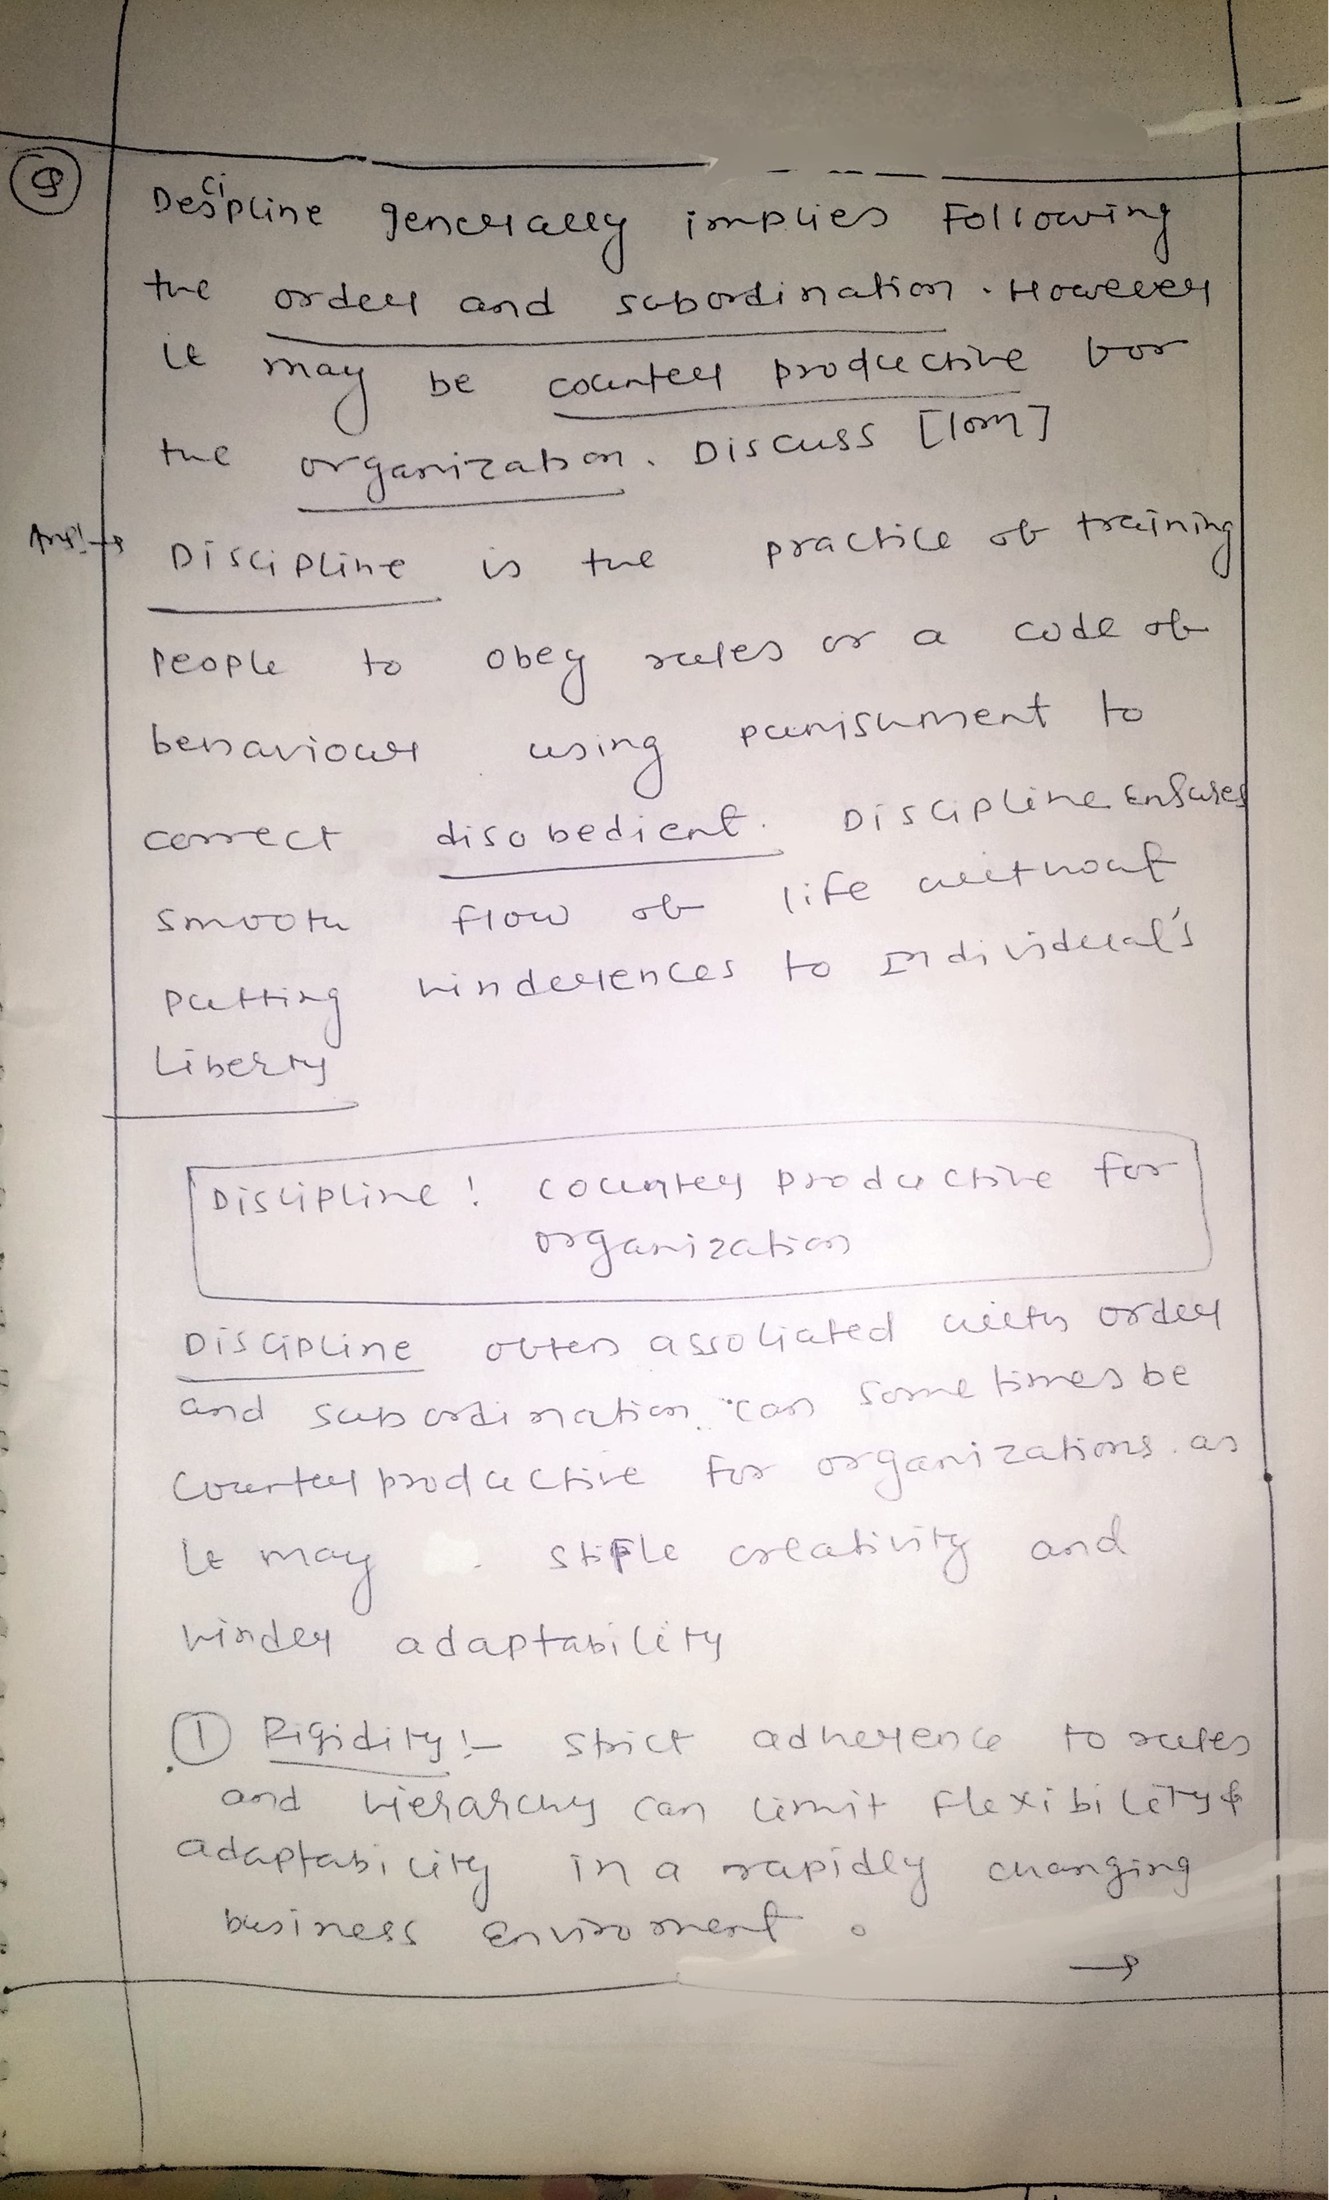 Q
Descipline generally implies Following
the order and subordination. However
it may be counter productive for
the organization. Discuss [10m]
Ans:→ Discipline is the practice of training
People to obey rules or a code of
behaviour using punishment to
correct disobedient. Discipline Ensures
smooth flow of life without
putting hinderences to Individual's
Liberty
Discipline: counter productive for
organization
Discipline often associated with order
and subordination can sometimes be
Counter productive for organizations as
it may stifle creativity and
hinder adaptability
① Rigidity:- strict adherence to rules
and hierarchy can limit flexibility &
adaptability in a rapidly changing
business Enviroment.
→